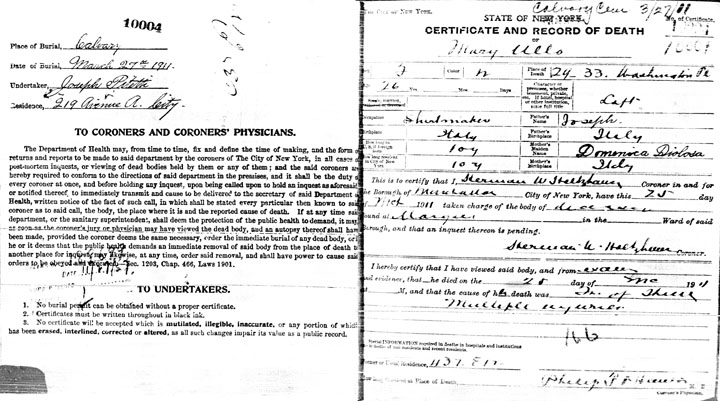 10004
Place of Burial, Calvary
Date of Burial, March 27th 1911.
Undertaker, Joseph Pitetti
Residence, 219 Avenue A. City.
TO CORONERS AND CORONERS' PHYSICIANS.
The Department of Health may, from time to time, fix and define the time of making, and the form
returns and reports to be made to said department by the coroners of The City of New York, in all cases
post-mortem inquests, or viewing of dead bodies held by them or any of them; and the said coroners are
hereby required to conform to the directions of said department in the premises, and it shall be the duty
every coroner at once, and before holding any inquest, upon being called upon to hold an inquest as aforesaid
or notified thereof, to immediately transmit and cause to be delivered to the secretary of said Department of
Health, written notice of the fact of such call, in which shall be stated every particular then known to said
coroner as to said call, the body, the place where it is and the reported cause of death. If at any time said
department, or the sanitary superintendent, shall deem the protection of the public health to demand it, may
as soon as the coroner's jury or physician may have viewed the dead body, and an autopsy thereof shall have
been made, provided the coroner deems the same necessary, order the immediate burial of any dead body, or
he or it deems that the public demands an immediate removal of said body from the place of death
another place for at any time, order said removal, and shall have power to cause said
orders to be obeyed and Sec. 1203, Chap. 466, Laws 1901.
TO UNDERTAKERS.
1. No burial permit can be obtained without a proper certificate.
2. Certificates must be written throughout in black ink.
3. No certificate will be accepted which is mutilated, illegible, inaccurate, or any portion of which
has been erased, interlined, corrected or altered, as all such changes impair its value as a public record.
Calvary Cem 3/27/11
City of New York.
STATE OF NEW YORK.
No. of Certificate.
CERTIFICATE AND RECORD OF DEATH
OF
Mary Ullo
F
Color W
Place of Death 29-33 Washington Pl
26 Yrs. Mos. Days
Character of premises, whether tenement, private, etc. If hotel, hospital or other institution, state full title
Loft
Occupation
Shirtmaker
Father's Name
Joseph
Birthplace
Italy
Father's Birthplace
Italy
10 y
Mother's Maiden Name
Domenica Diolosa
10 y
Mother's Birthplace
Italy
This is to certify that I, Herman W Holtzhauser Coroner in and for
the Borough of Manhattan City of New York, have this 25 day
1911 taken charge of the body of
found at Morgue in the Ward of said
Borough, and that an inquest thereon is pending.
Herman W. Holtzhauser Coroner.
I hereby certify that I have viewed said body, and from
and evidence, that he died on the 25 day of 191
M, and that the cause of h death was
Multiple injuries
166
Special INFORMATION required in deaths in hospitals and institutions
and in deaths of non-residents and recent residents.
Former or Usual Residence, 437 E 12
How long resident at Place of Death,
Coroner's Physician.